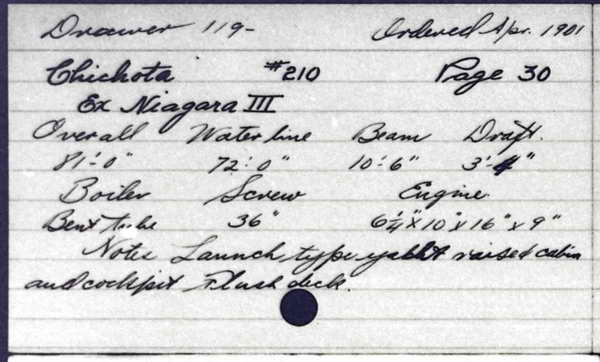 Drawer 119- Ordered Apr. 1901
Chichota #210 Page 30
Ex Niagara III
Overall Water line Beam Draft.
81'-0" 72'-0" 10'-6" 3'-4"
Boiler Screw Engine
Bent tube 36" 6¼" x 10" x 16" x 9"
Note Launch type yacht raised cabin
and cockpit Flush deck.